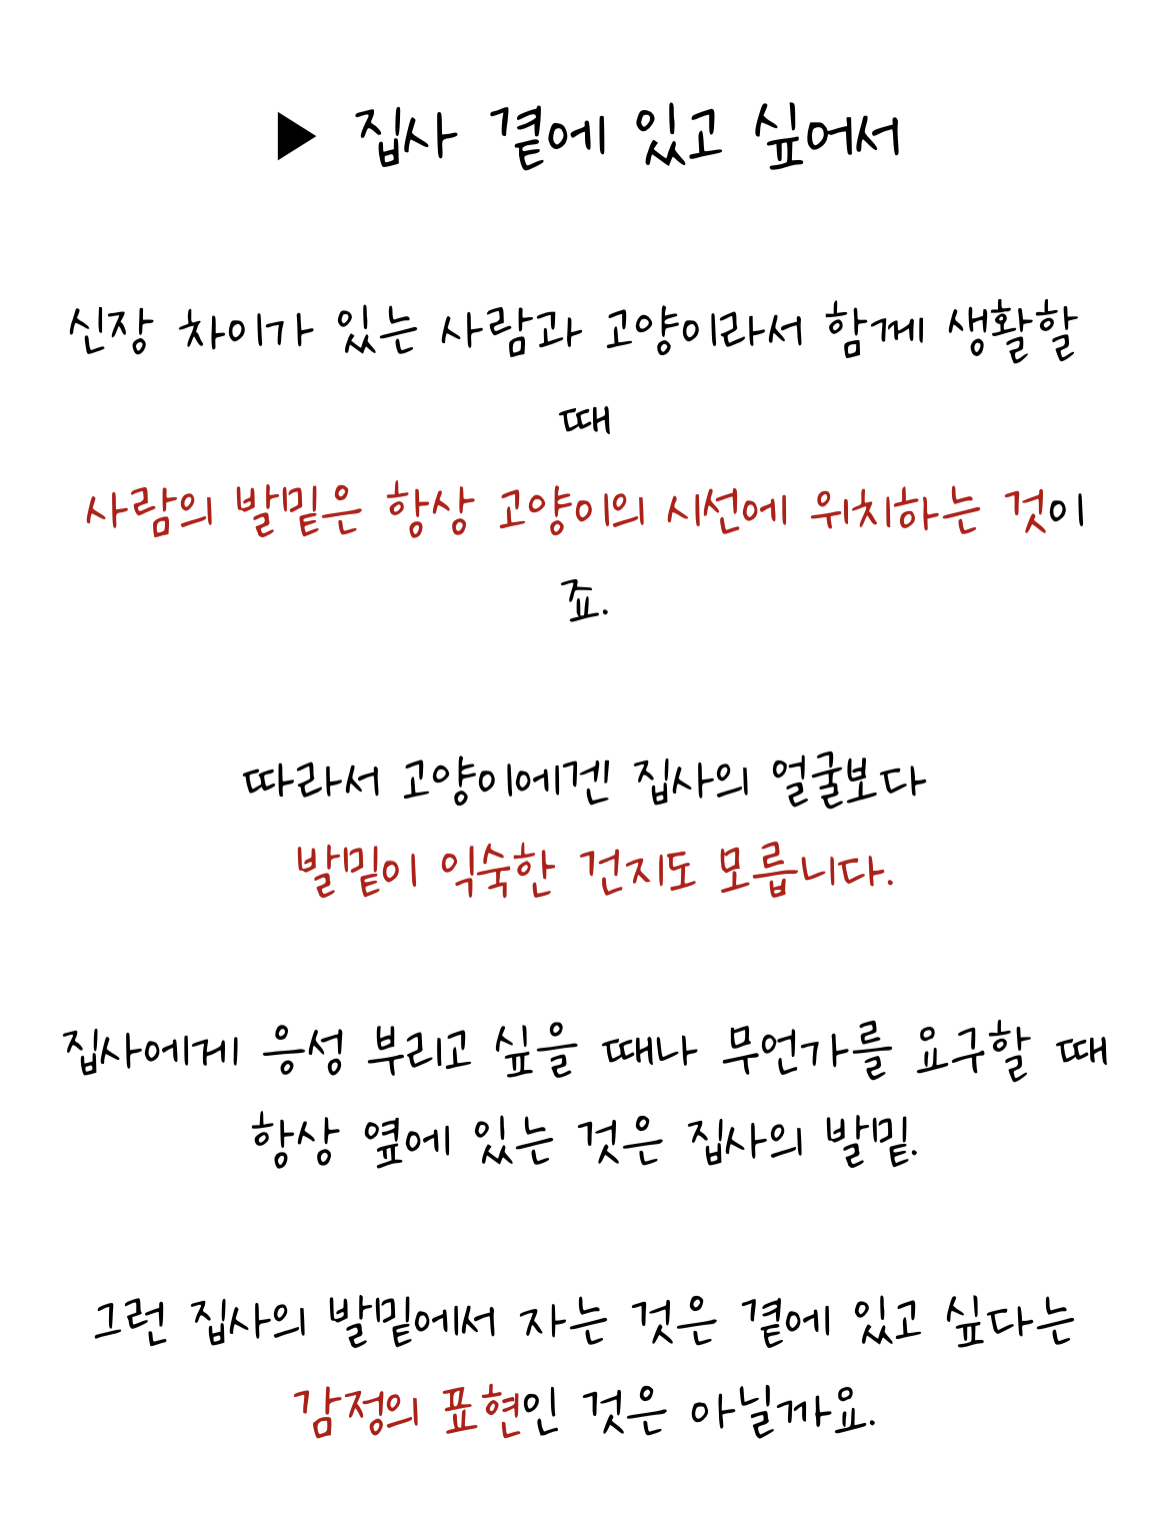 ▶ 집사 곁에 있고 싶어서
신장 차이가 있는 사람과 고양이라서 함께 생활할
때
사람의 발밑은 항상 고양이의 시선에 위치하는 것이
죠.
따라서 고양이에겐 집사의 얼굴보다
발밑이 익숙한 건지도 모릅니다.
집사에게 응성 부리고 싶을 때나 무언가를 요구할 때
항상 옆에 있는 것은 집사의 발밑.
그런 집사의 발밑에서 자는 것은 곁에 있고 싶다는
감정의 표현인 것은 아닐까요.